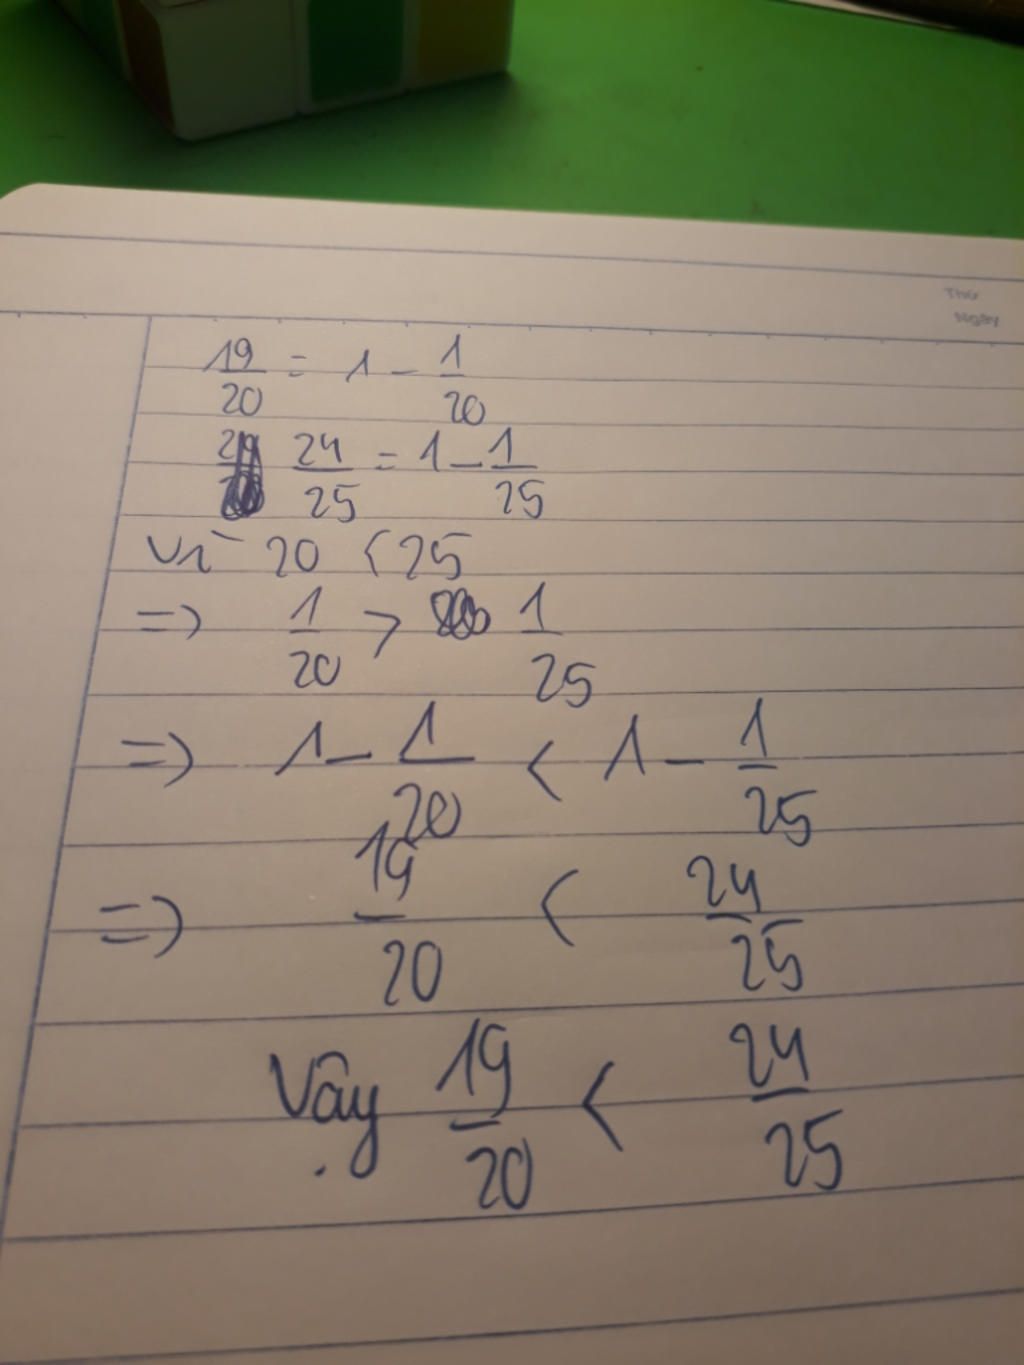 Thứ
Ngày
19/20 = 1 - 1/20
24/25 = 1 - 1/25
Vì 20 < 25
=> 1/20 > 1/25
=> 1 - 1/20 < 1 - 1/25
=> 19/20 < 24/25
Vậy 19/20 < 24/25